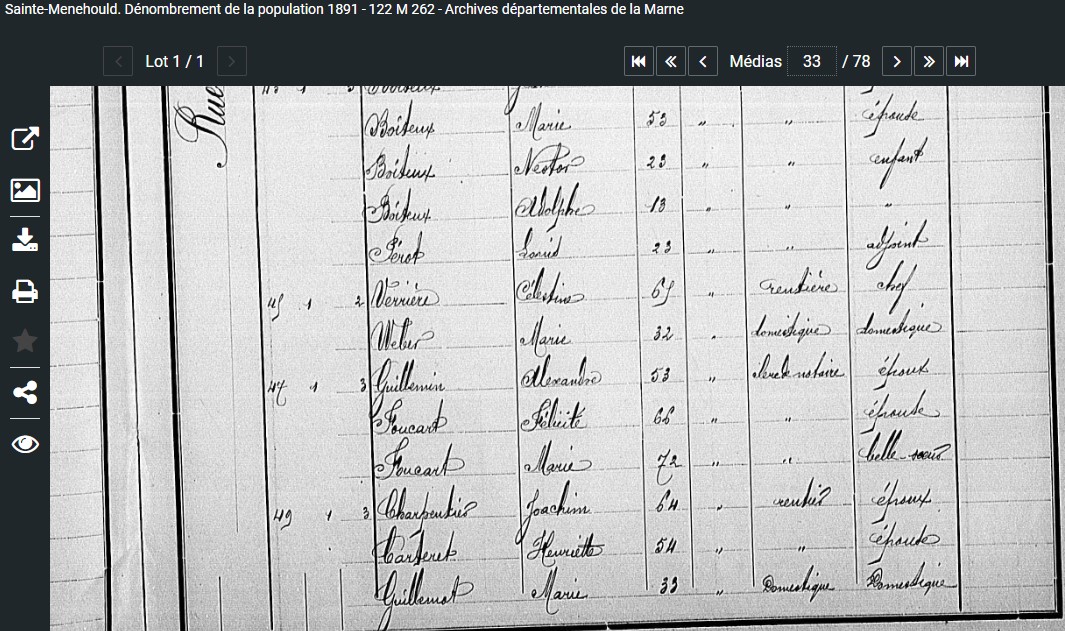 Sainte-Menehould. Dénombrement de la population 1891 - 122 M 262 - Archives départementales de la Marne
Lot 1 / 1 Médias 33 / 78
Rue
Boiteux Marie 53 " " épouse
Boiteux Nestor 23 " " enfant
Boiteux Adolphe 13 " " "
Pérot 23 " " adjoint
45 1 2 Verrière Célestine 65 " rentière chef
Weber Marie 32 " domestique domestique
47 1 3 Guillemin Alexandre 53 " clerc de notaire époux
Foucart Félicité 66 " " épouse
Foucart Marie 72 " " belle-sœur
49 1 3 Charpentier Joachim 64 rentier époux
Carteret Henriette 54 " " épouse
Guillemot Marie 33 " Domestique Domestique